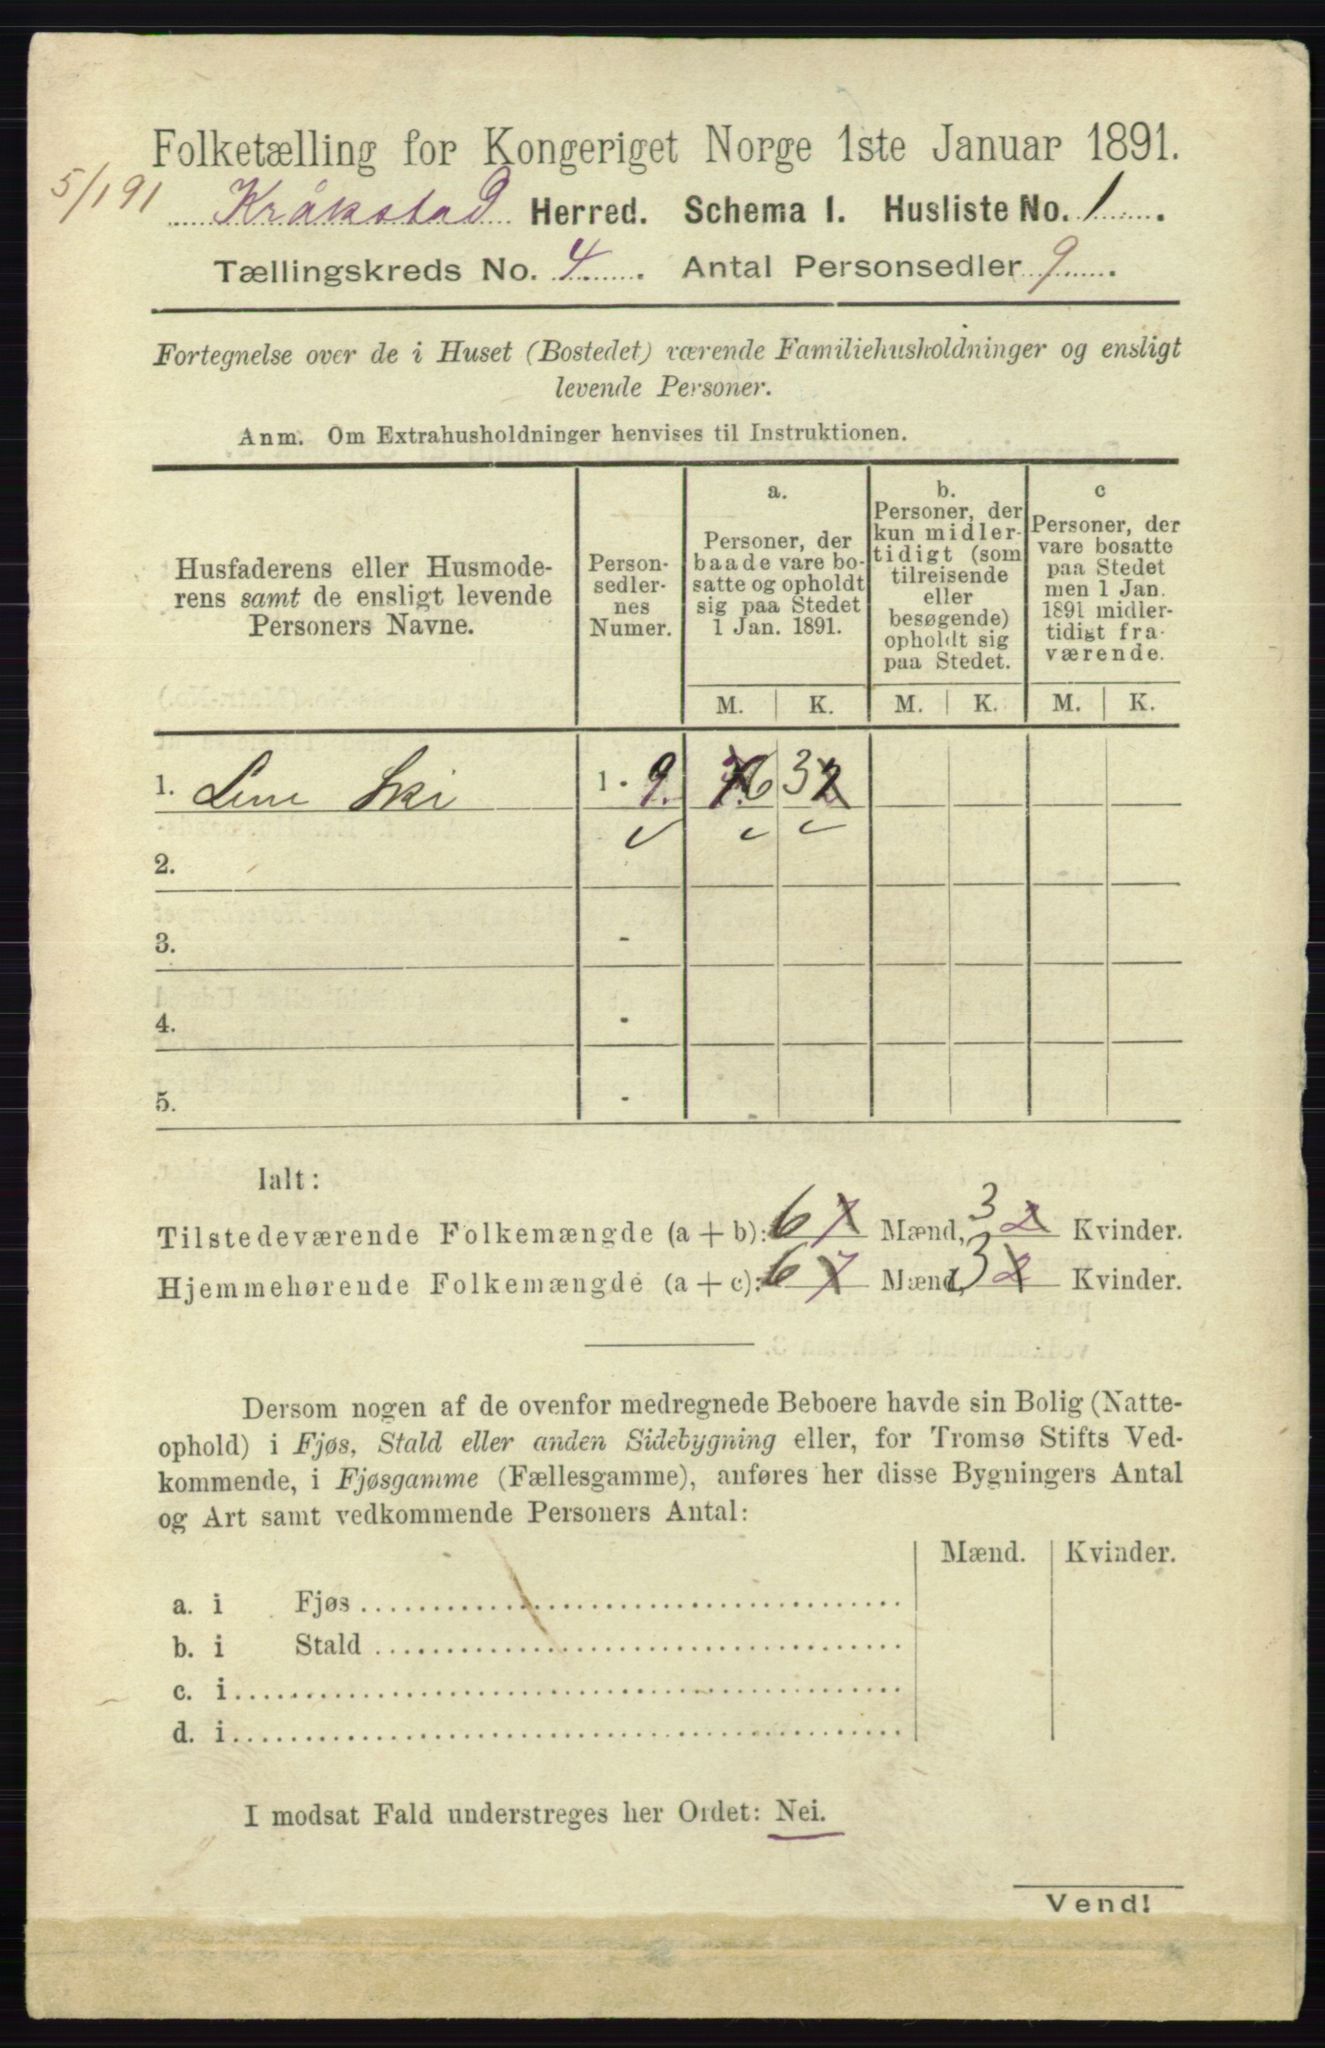 Folketælling for Kongeriget Norge 1ste Januar 1891.
5/1 91
Kråkstad Herred. Schema I. Husliste No. 1.
Tællingskreds No. 4. Antal Personsedler 9.
Fortegnelse over de i Huset (Bostedet) værende Familiehusholdninger og ensligt
levende Personer.
Anm. Om Extrahusholdninger henvises til Instruktionen.
Husfaderens eller Husmode-
rens samt de ensligt levende
Personers Navne.
Person-
sedler-
nes
Numer.
a.
Personer, der
baade vare bo-
satte og opholdt
sig paa Stedet
1 Jan. 1891.
b.
Personer, der
kun midler-
tidigt (som
tilreisende
eller
besøgende)
opholdt sig
paa Stedet.
c
Personer, der
vare bosatte
paa Stedet
men 1 Jan.
1891 midler-
tidigt fra-
værende.
M. K. M. K. M. K.
1. Ski 1 - 9. 7 6 3 2
2.
3. -
4. -
5. -
Ialt:
Tilstedeværende Folkemængde (a + b): 6 7 Mænd, 3 2 Kvinder.
Hjemmehørende Folkemængde (a + c): 6 7 Mænd, 3 2 Kvinder.
Dersom nogen af de ovenfor medregnede Beboere havde sin Bolig (Natte-
ophold) i Fjøs, Stald eller anden Sidebygning eller, for Tromsø Stifts Ved-
kommende, i Fjøsgamme (Fællesgamme), anføres her disse Bygningers Antal
og Art samt vedkommende Personers Antal:
Mænd. Kvinder.
a. i Fjøs
b. i Stald
c. i
d. i
I modsat Fald understreges her Ordet: Nei.
Vend!